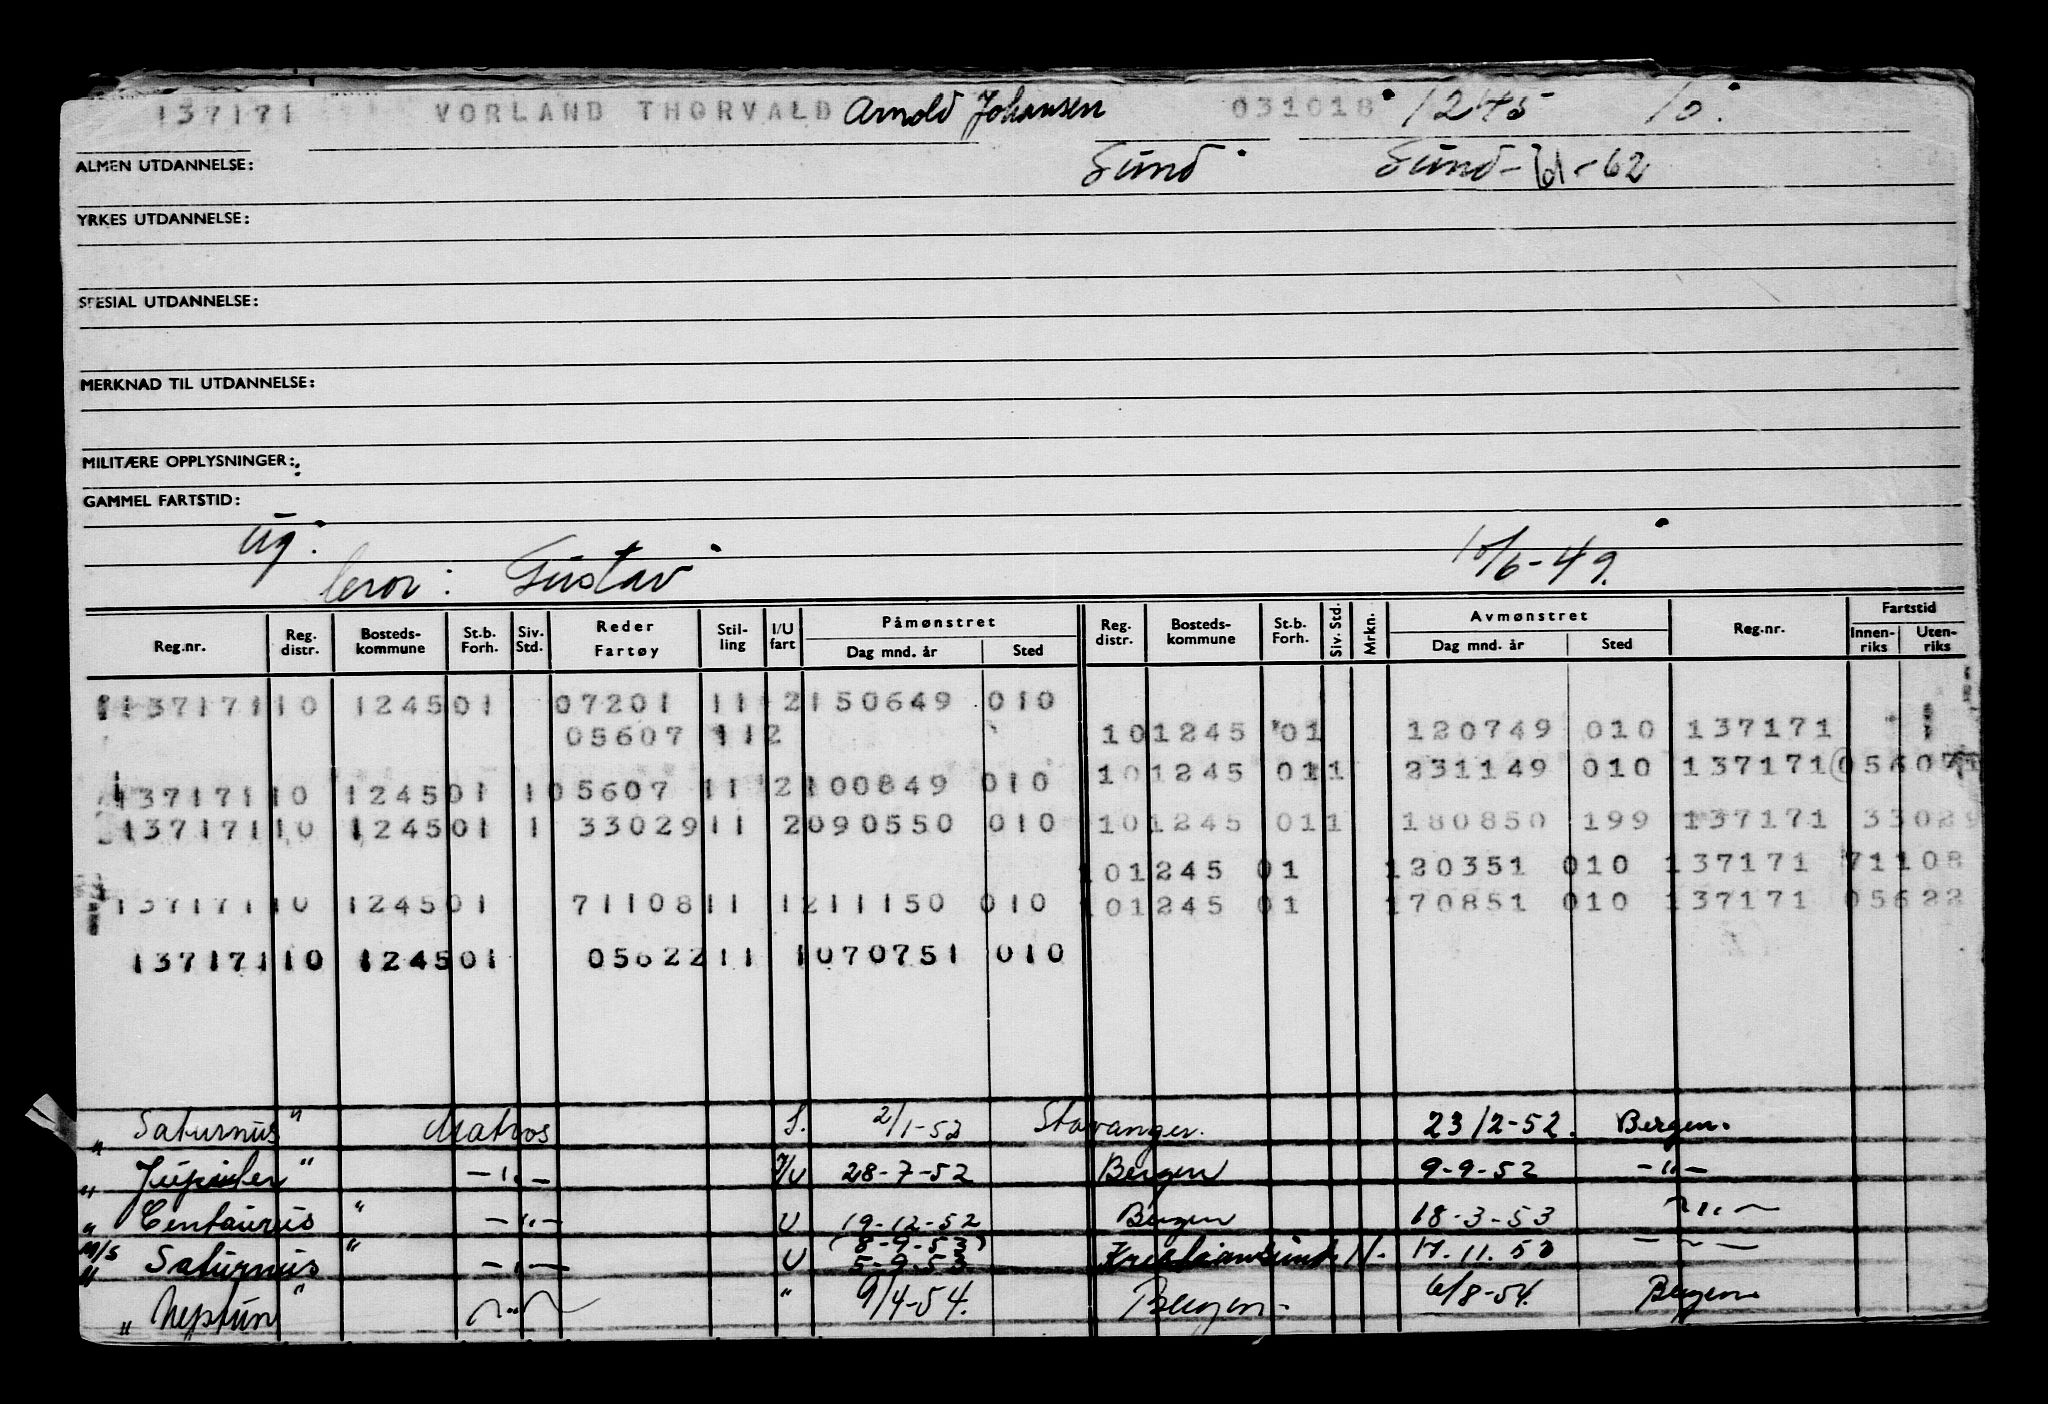 137171 VORLAND THORVALD Arnold Johansen 031018 1245 10.
ALMEN UTDANNELSE: Sund Sund - 61 - 62
YRKES UTDANNELSE:
SPESIAL UTDANNELSE:
MERKNAD TIL UTDANNELSE:
MILITÆRE OPPLYSNINGER:
GAMMEL FARTSTID:
ug.
Gustav 10/6-49.
Reg.nr. Reg. distr. Bosteds-kommune St.b. Forh. Siv. Std. Reder Fartøy Stil-ling I/U fart Påmønstret Dag mnd. år Sted Reg. distr. Bosteds-kommune St.b. Forh. Siv. Std. Mrkn. Avmønstret Dag mnd. år Sted Reg.nr. Fartstid Innen-riks Uten-riks
137171 10 1245 01 07201 11 2 150649 010
05607 11 2 10 1245 01 120749 010 137171
10 1245 01 1 231149 010 137171 05607
137171 10 1245 01 1 05607 11 2 100849 010
137171 10 1245 01 1 33029 11 2 090550 010 10 1245 01 1 180850 199 137171 33029
10 1245 01 120351 010 137171 71108
137171 10 1245 01 71108 11 1 211150 010 10 1245 01 170851 010 137171 05622
137171 10 1245 01 05622 11 1 070751 010
" Saturnus " Matros S. 2/1-52 Stavanger. 23/2-52. Bergen.
" Jupiter " - " - I/U 28-7-52 Bergen 9-9-52 - " -
" Centaurus " - " - U 19-12-52 Bergen 18-3-53 - " -
M/S Saturnus " - " - U (8-9-53) 5-9-53 Kristiansund N. 17.11.53 - " -
" Neptun " - " - " 9/4-54. Bergen - 6/8-54. Bergen